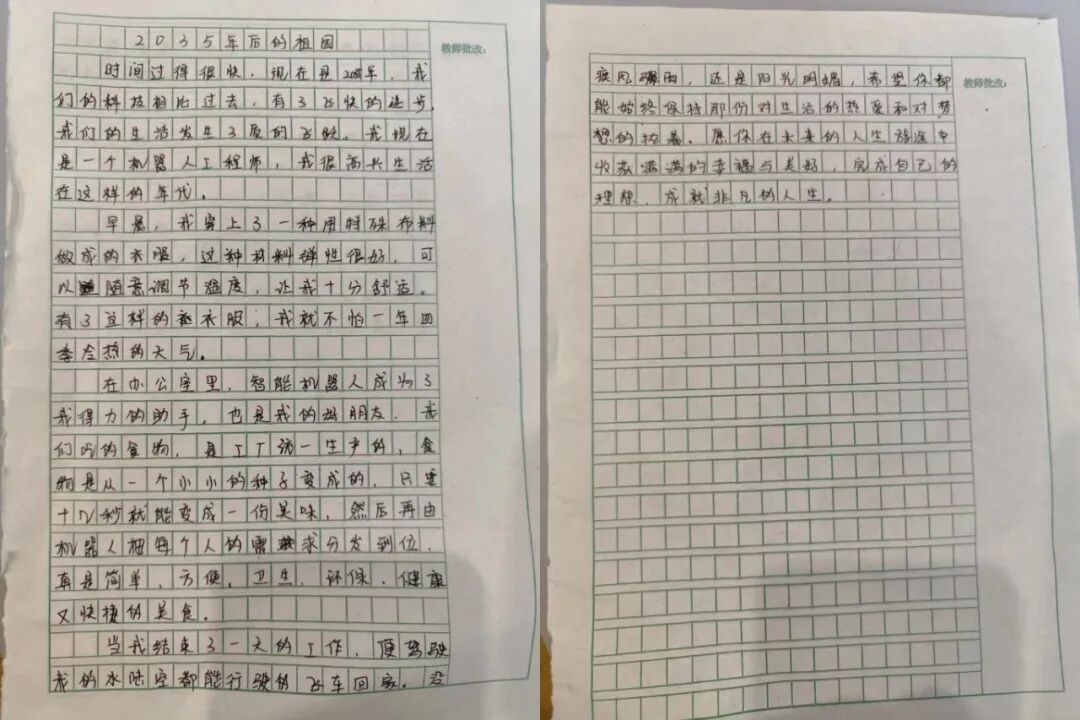 2035年后的祖国
教师批改:
时间过得很快，现在是2035年，我
们的科技相比过去，有了飞快的进步，
我们的生活发生了质的飞跃。我现在
是一个机器人工程师，我很高兴生活
在这样的年代。
早晨，我穿上了一种用特殊布料
做成的衣服，这种材料弹性很好，可
以随意调节温度，让我十分舒适。
有了这样的衣服，我就不怕一年四
季冷热的天气。
在办公室里，智能机器人成为了
我得力的助手，也是我的朋友。我
们吃的食物，是工厂统一生产的，食
物是从一个小小的种子变成的，只要
十几秒就能变成一份美味，然后再由
机器人按每个人的需求分发到位，
真是简单、方便、卫生、环保、健康
又快捷的美食。
当我结束了一天的工作，便驾驶
我的水陆空都能行驶的飞车回家。没
教师批改:
疾风骤雨，还是阳光明媚，希望你都
能始终保持那份对生活的热爱和对梦
想的执着。愿你在未来的人生旅途中
收获满满的幸福与美好，完成自己的
理想，成就非凡的人生。